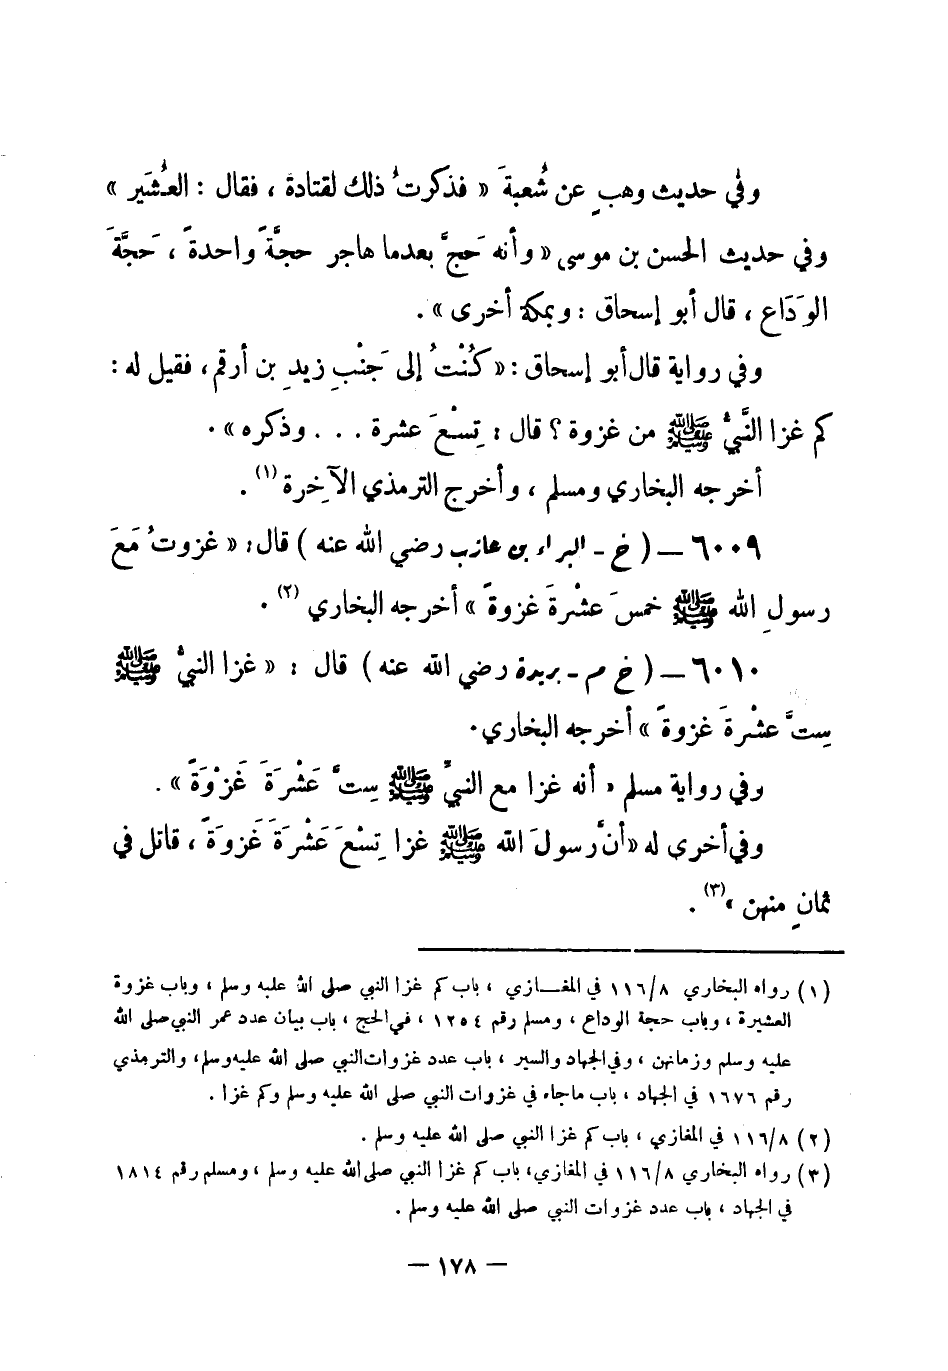 وفي حديث وهبٍ عن شُعبةَ « فذكرتُ ذلك لقتادة ، فقال : العُشَير »
وفي حديث الحسن بن موسى « وأنه حَجَّ بعدما هاجر حجَّةً واحدةً ، حَجَّةَ
الوَدَاع ، قال أبو إسحاق : وبمكة أخرى » .
وفي رواية قال أبو إسحاق : « كُنْتُ إلى جَنْبِ زيدِ بن أرقم ، فقيل له :
كم غزا النَّبيُّ ﷺ من غزوة ؟ قال : تِسْعَ عشرة . . . وذكره » .
أخرجه البخاري ومسلم ، وأخرج الترمذي الآخِرة (١) .
٦٠٠٩ – ( خ - البراء بن عازب رضي الله عنه ) قال : « غزوتُ مَعَ
رسولِ الله ﷺ خمسَ عشْرةَ غزوةً » أخرجه البخاري (٢) .
٦٠١٠ – ( خ م - بريدة رضي الله عنه ) قال : « غزا النبيُّ ﷺ
سِتَّ عشْرةَ غزوةً » أخرجه البخاري .
وفي رواية مسلم « أنه غزا مع النبيِّ ﷺ سِتَّ عَشْرَةَ غَزْوَةً » .
وفي أخرى له « أنَّ رسولَ الله ﷺ غزا تِسْعَ عَشْرَةَ غَزوةً ، قاتل في
ثمانٍ منهن » (٣) .
(١) رواه البخاري ١١٦/٨ في المغــازي ، باب كم غزا النبي صلى الله عليه وسلم ، وباب غزوة
العشيرة ، وباب حجة الوداع ، ومسلم رقم ١٢٥٤ ، في الحج ، باب بيان عدد عمر النبي صلى الله
عليه وسلم وزمانهن ، وفي الجهاد والسير ، باب عدد غزوات النبي صلى الله عليه وسلم ، والترمذي
رقم ١٦٧٦ في الجهاد ، باب ماجاء في غزوات النبي صلى الله عليه وسلم وكم غزا .
(٢) ١١٦/٨ في المغازي ، باب كم غزا النبي صلى الله عليه وسلم .
(٣) رواه البخاري ١١٦/٨ في المغازي ، باب كم غزا النبي صلى الله عليه وسلم ، ومسلم رقم ١٨١٤
في الجهاد ، باب عدد غزوات النبي صلى الله عليه وسلم .
— ١٧٨ —